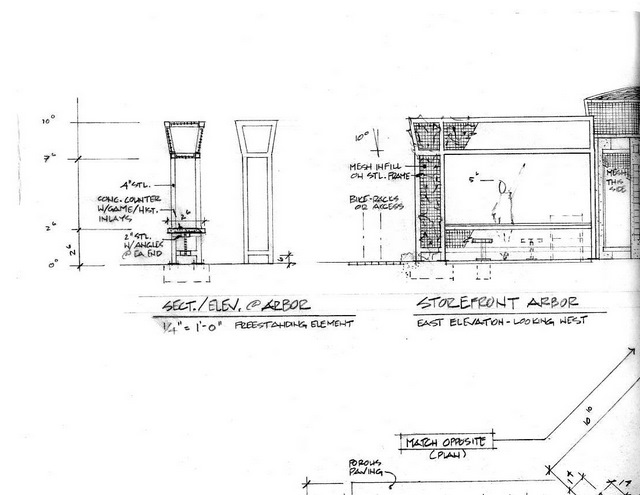 10⁰
7⁰
2⁶
0⁰
2⁶
4" STL.
CONC. COUNTER
W/GAME/HKT.
INLAYS
2⁶
2" STL.
W/ANGLES
@ EA END
SECT./ELEV. @ ARBOR
1/4" = 1'-0" FREESTANDING ELEMENT
10⁰
MESH INFILL
ON STL. FRAME
BIKE-RACKS
OR ACCESS
5⁶
MESH
THIS
SIDE
STOREFRONT ARBOR
EAST ELEVATION - LOOKING WEST
MATCH OPPOSITE
(PLAN)
POROUS
PAVING